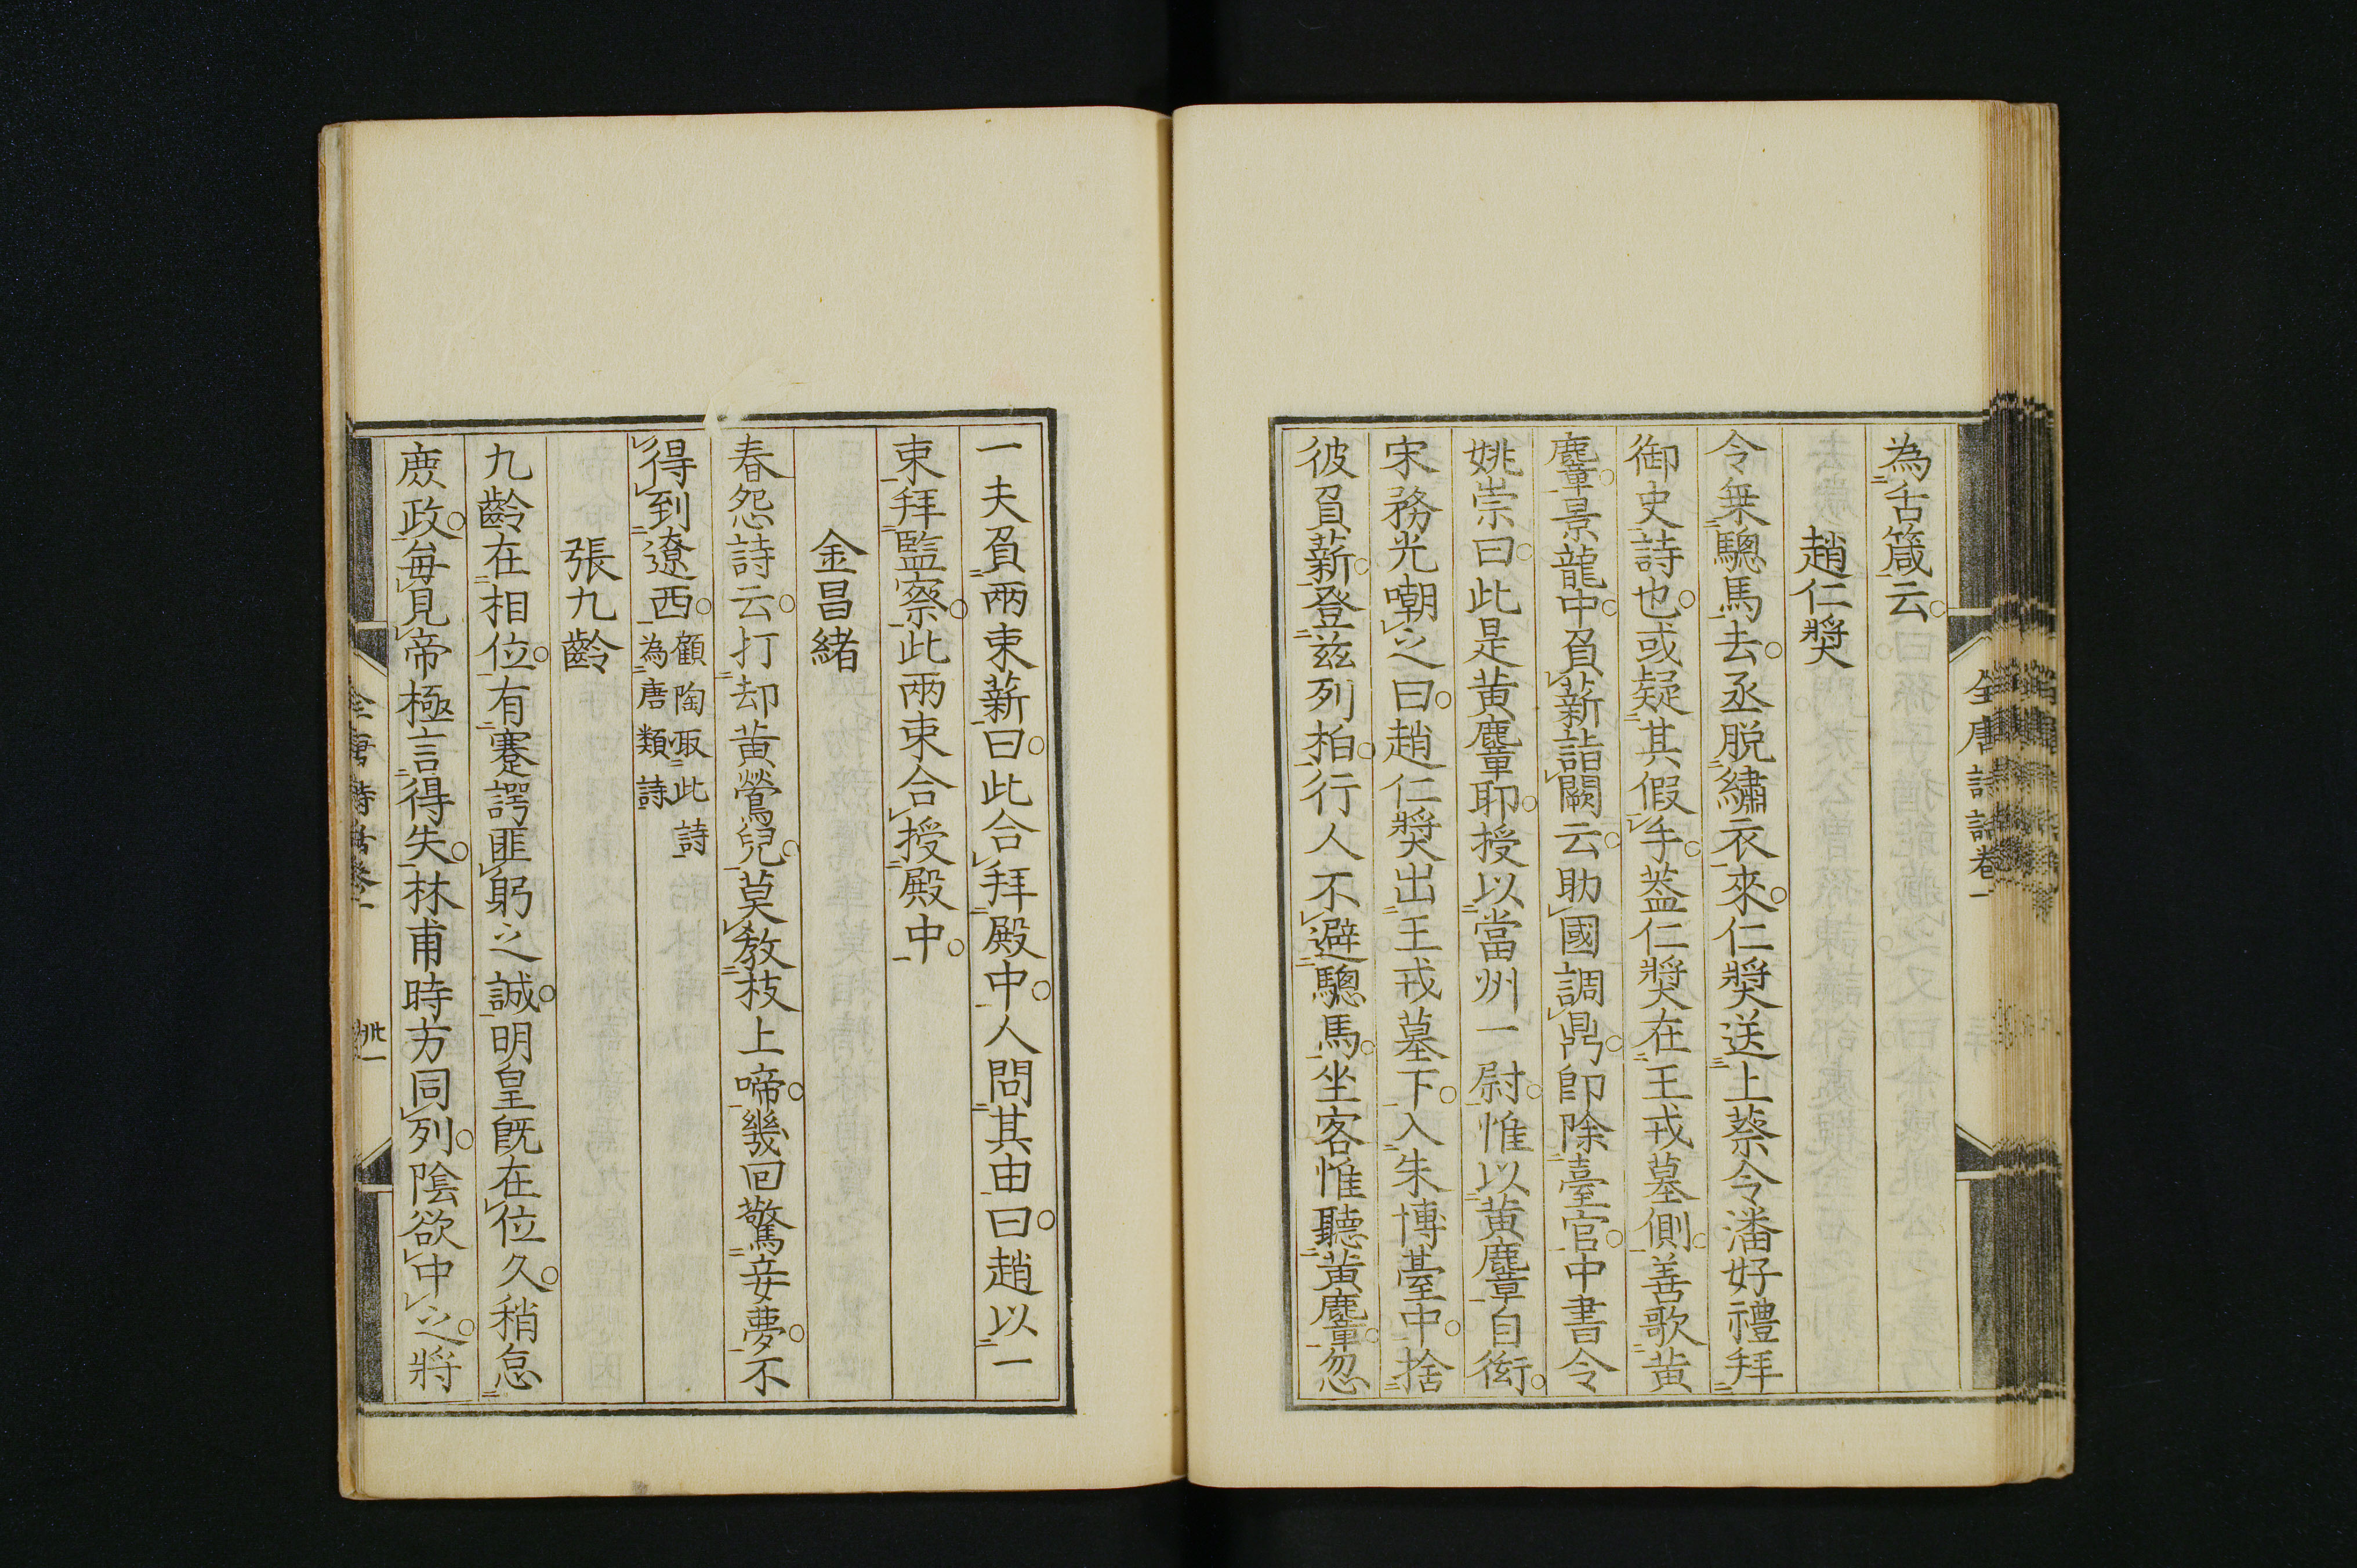 為舌箴云
趙仁奬
令乗驄馬去丞脱繡衣來仁奬送上蔡令潘好禮拜
御史詩也或疑其假手葢仁奬在王戎墓側善歌黄
麞景龍中負薪詣闕云助國調鼎即除臺官中書令
姚崇曰此是黄麞耶授以當州一尉惟以黄麞自衒
宋務光嘲之曰趙仁奬出王戎墓下入朱博臺中捨
彼負薪登兹列柏行人不避驄馬坐客惟聽黄麞忽
一夫負兩束薪曰此合拜殿中人問其由曰趙以一
束拜監察此兩束合授殿中
金昌緒
春怨詩云打却黄鶯兒莫教枝上啼幾回驚妾夢不
得到遼西
顧陶取此詩
為唐類詩
張九齡
九齡在相位有蹇諤匪躬之誠明皇既在位久稍怠
庶政每見帝極言得失林甫時方同列陰欲中之將
全唐詩話卷一